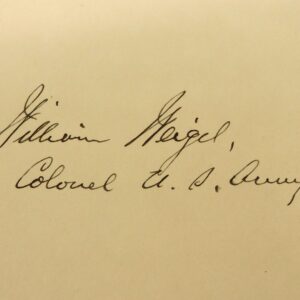 William Weigel,
Colonel U. S. Army